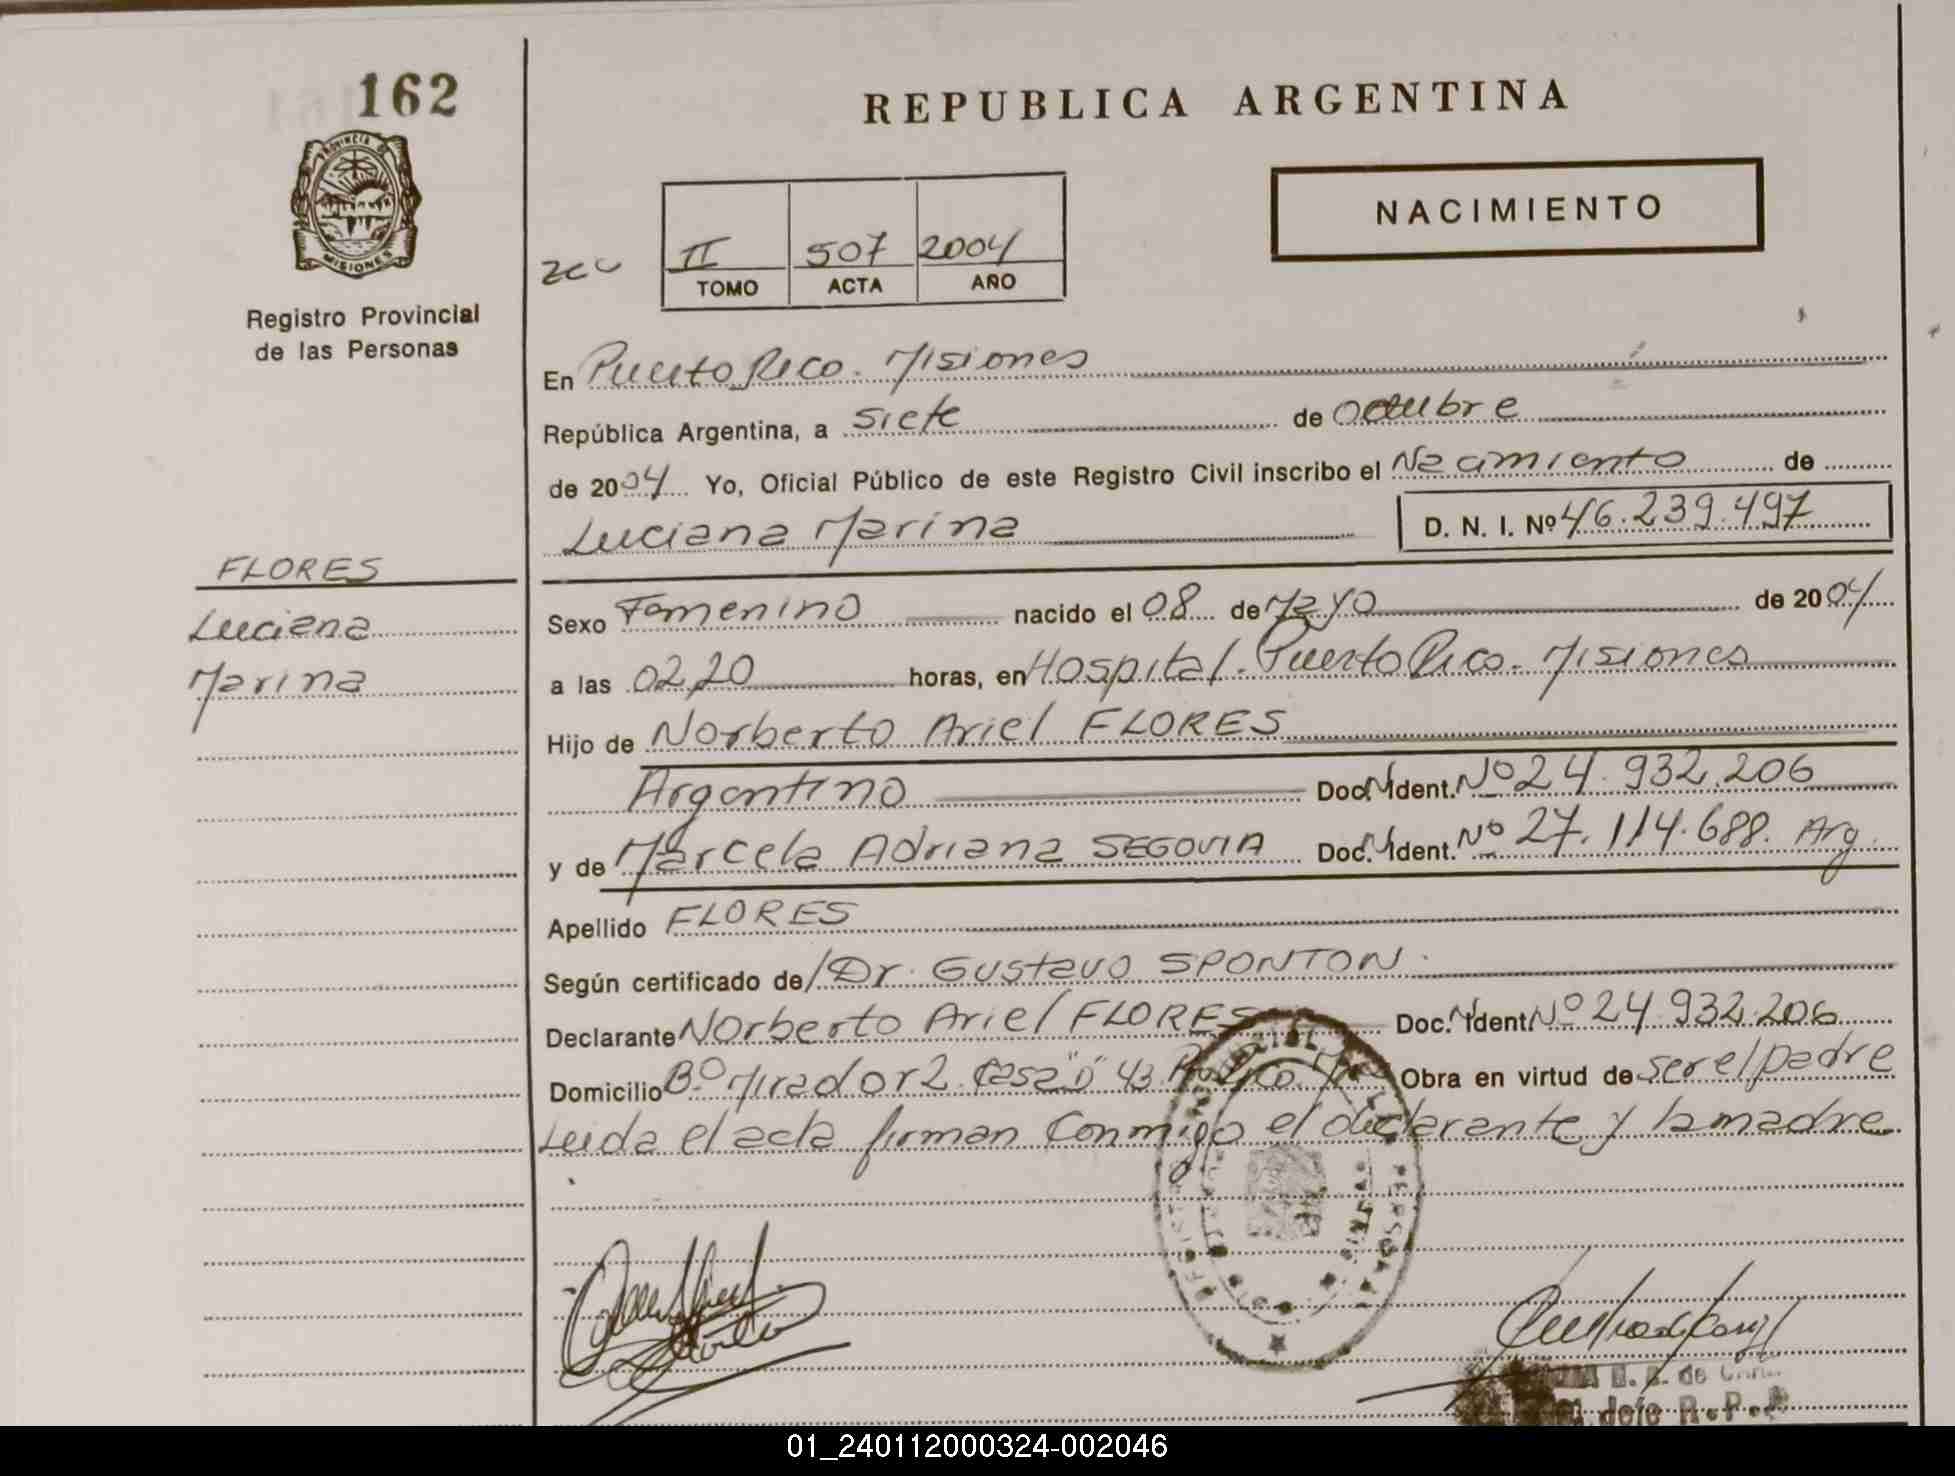 162
PROVINCIA DE
MISIONES
Registro Provincial
de las Personas
REPUBLICA ARGENTINA
NACIMIENTO
II 507 2004
TOMO ACTA AÑO
En Puerto Rico. Misiones
República Argentina, a siete de octubre
de 2004 Yo, Oficial Público de este Registro Civil inscribo el Nacimiento de
Luciana Marina D. N. I. Nº 46.239.497
FLORES
Luciana
Marina
Sexo Femenino nacido el 08 de Mayo de 2004
a las 02,20 horas, en Hospital. Puerto Rico. Misiones
Hijo de Norberto Ariel FLORES
Argentino Doc. Ident. Nº 24.932.206
y de Marcela Adriana SEGOVIA Doc. Ident. Nº 27.114.688. Arg.
Apellido FLORES
Según certificado de Dr. Gustavo SPONTON.
Declarante Norberto Ariel FLORES Doc. Ident Nº 24.932.206
Domicilio Bº Mirador 2. Casa "D" 43 Obra en virtud de ser el padre
Leida el acta firman conmigo el declarante y la madre
01_240112000324-002046